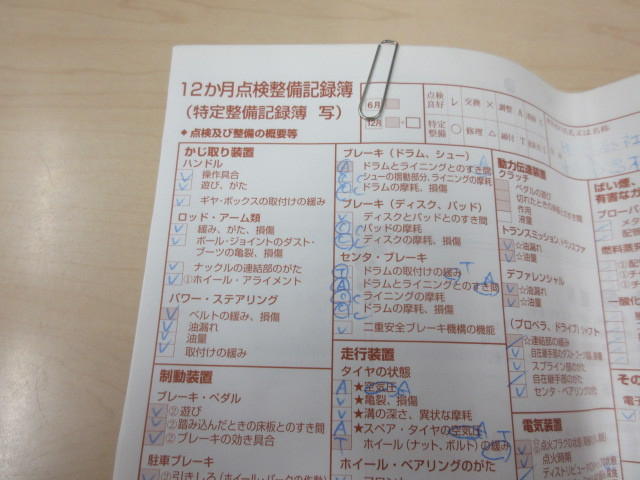 12か月点検整備記録簿
(特定整備記録簿 写)
◆点検及び整備の概要等
6月
12月
点検良好 レ 交換 × 調整 A
特定整備 ○ 修理 △ 締付 T
かじ取り装置
ハンドル
操作具合
遊び、がた
ギヤ・ボックスの取付けの緩み
ロッド・アーム類
緩み、がた、損傷
ボール・ジョイントのダスト・
ブーツの亀裂、損傷
ナックルの連結部のがた
①ホイール・アライメント
パワー・ステアリング
ベルトの緩み、損傷
油漏れ
油量
取付けの緩み
制動装置
ブレーキ・ペダル
②遊び
②踏み込んだときの床板とのすき間
②ブレーキの効き具合
駐車ブレーキ
②引きしろ(ホイール・パークの作動)
ブレーキ(ドラム、シュー)
A ドラムとライニングとのすき間 A
C シューの摺動部分、ライニングの摩耗
C ドラムの摩耗、損傷
ブレーキ(ディスク、パッド)
ディスクとパッドとのすき間
C パッドの摩耗
C ディスクの摩耗、損傷
センタ・ブレーキ
T ドラムの取付けの緩み T
A ドラムとライニングとのすき間 A
C ライニングの摩耗
C ドラムの摩耗、損傷
二重安全ブレーキ機構の機能
走行装置
タイヤの状態
A ★空気圧 A
★亀裂、損傷
★溝の深さ、異状な摩耗
A ★スペア・タイヤの空気圧 A
T ホイール(ナット、ボルト)の緩み T
ホイール・ベアリングのがた
フロント
動力伝達装置
クラッチ
ペダルの遊び
切れたときの床板とのすき間
作用
液量
トランスミッション、トランスファ
☆油漏れ
☆油量
デファレンシャル
☆油漏れ
☆油量
(プロペラ、ドライブ)シャフト
☆連結部の緩み
自在継手部のダスト・ブーツの亀裂、損傷
スプライン部のがた
自在継手部のがた
センタ・ベアリングのがた
電気装置
☆点火プラグの状態
点火時期
ばい煙、
有害なガ
ブローバ
メタ
配
燃料蒸
一酸化
その
電子